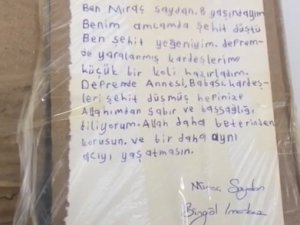 Ben Miraç Saydan. 8 yaşındayım
Benim amcamda şehit düştü
Ben şehit yeğeniyim. deprem-
de yaralanmış kardeşlerime
küçük bir koli hazırladım.
Depremde Annesi, Babası, kardeş-
leri şehit düşmüş herinize
Allahımdan sabır ve başsağlığı
diliyorum. Allah daha beterinden
korusun, ve bir daha aynı
acıyı yaşatmasın.
Miraç Saydan
Bingöl